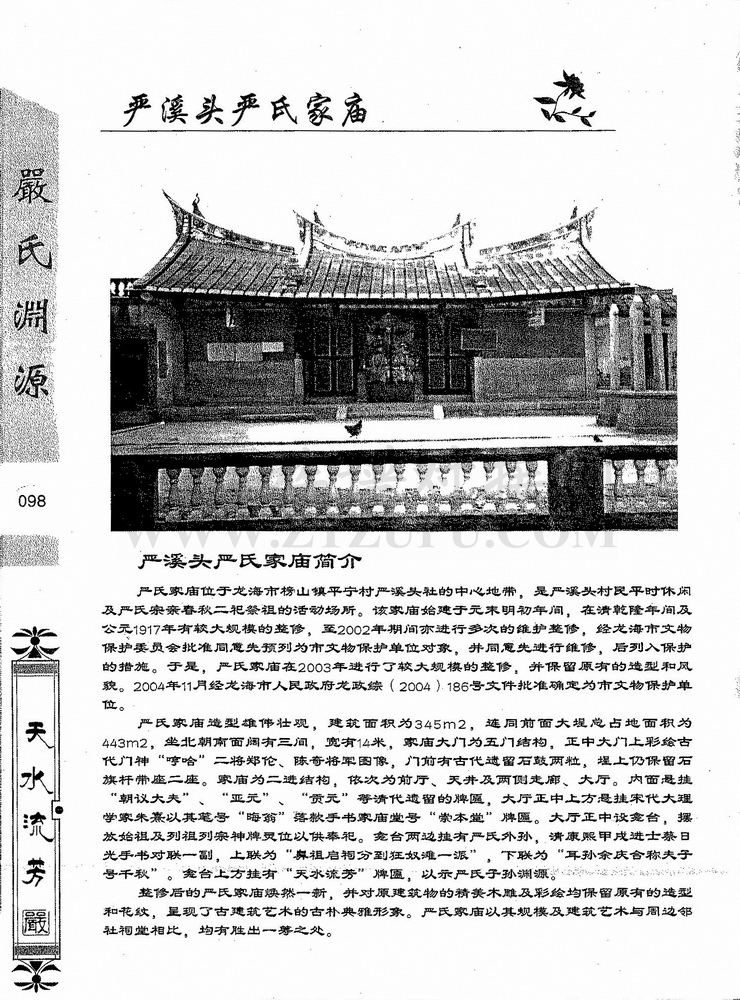 严溪头严氏家庙
嚴氏淵源
098
天水流芳
嚴
严溪头严氏家庙简介
严氏家庙位于龙海市榜山镇平宁村严溪头社的中心地带，是严溪头村民平时休闲
及严氏宗亲春秋二祀祭祖的活动场所。该家庙始建于元末明初年间，在清乾隆年间及
公元1917年有较大规模的整修，至2002年期间亦进行多次的维护整修，经龙海市文物
保护委员会批准同意先预列为市文物保护单位对象，并同意先进行维修，后列入保护
的措施。于是，严氏家庙在2003年进行了较大规模的整修，并保留原有的造型和风
貌。2004年11月经龙海市人民政府龙政综（2004）186号文件批准确定为市文物保护单
位。
严氏家庙造型雄伟壮观，建筑面积为345m2，连同前面大埕总占地面积为
443m2，坐北朝南面阔有三间，宽有14米，家庙大门为五门结构，正中大门上彩绘古
代门神“哼哈”二将郑伦、陈奇将军图像，门前有古代遗留石鼓两粒，埕上仍保留石
旗杆带座二座。家庙为二进结构，依次为前厅、天井及两侧走廊、大厅。内面悬挂
“朝议大夫”、“亚元”、“贡元”等清代遗留的牌匾，大厅正中上方悬挂宋代大理
学家朱熹以其笔号“晦翁”落款手书家庙堂号“崇本堂”牌匾。大厅正中设龛台，摆
放始祖及列祖列宗神牌灵位以供奉祀。龛台两边挂有严氏外孙，清康熙甲戌进士蔡日
光手书对联一副，上联为“鼻祖启祠分到狂奴滩一派”，下联为“耳孙余庆合称夫子
号千秋”。龛台上方挂有“天水流芳”牌匾，以示严氏子孙渊源。
整修后的严氏家庙焕然一新，并对原建筑物的精美木雕及彩绘均保留原有的造型
和花纹，呈现了古建筑艺术的古朴典雅形象。严氏家庙以其规模及建筑艺术与周边邻
社祠堂相比，均有胜出一筹之处。